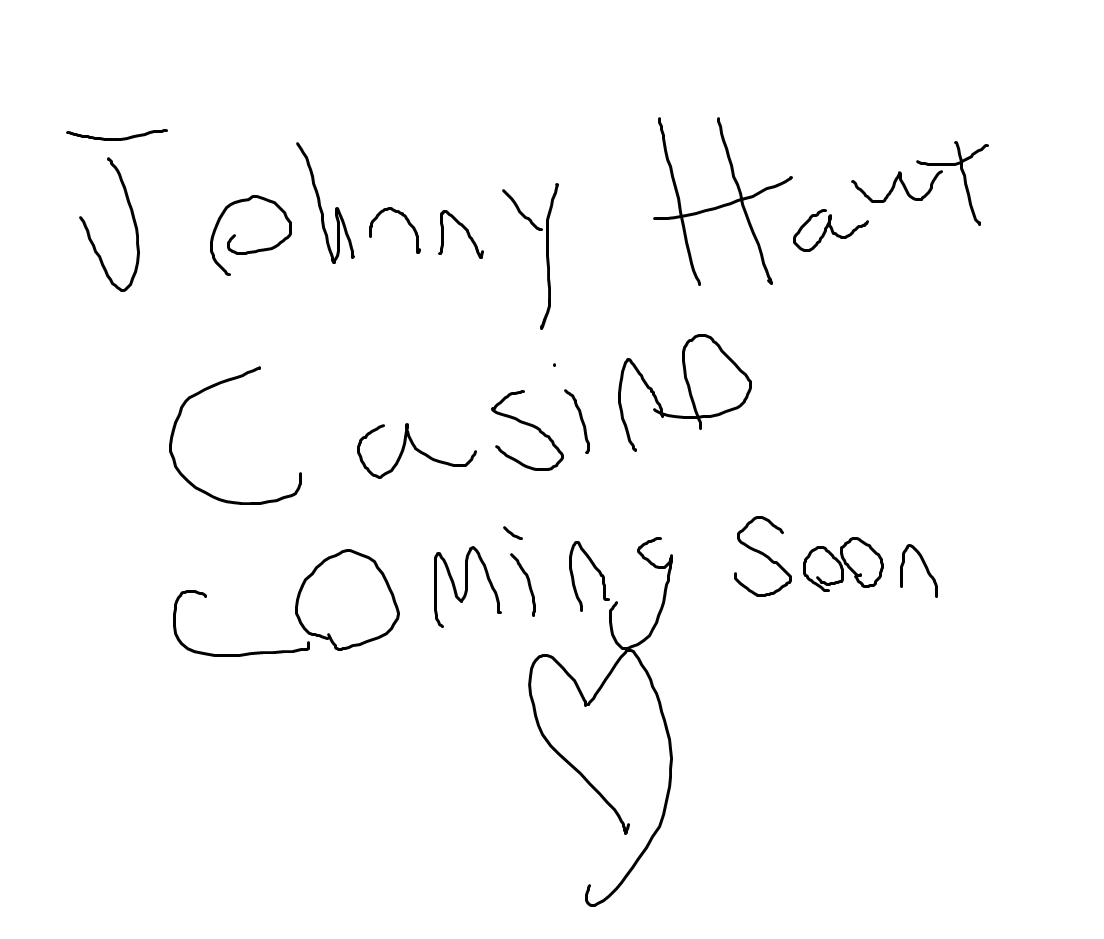 Johnny Hawt
Casino
coming soon